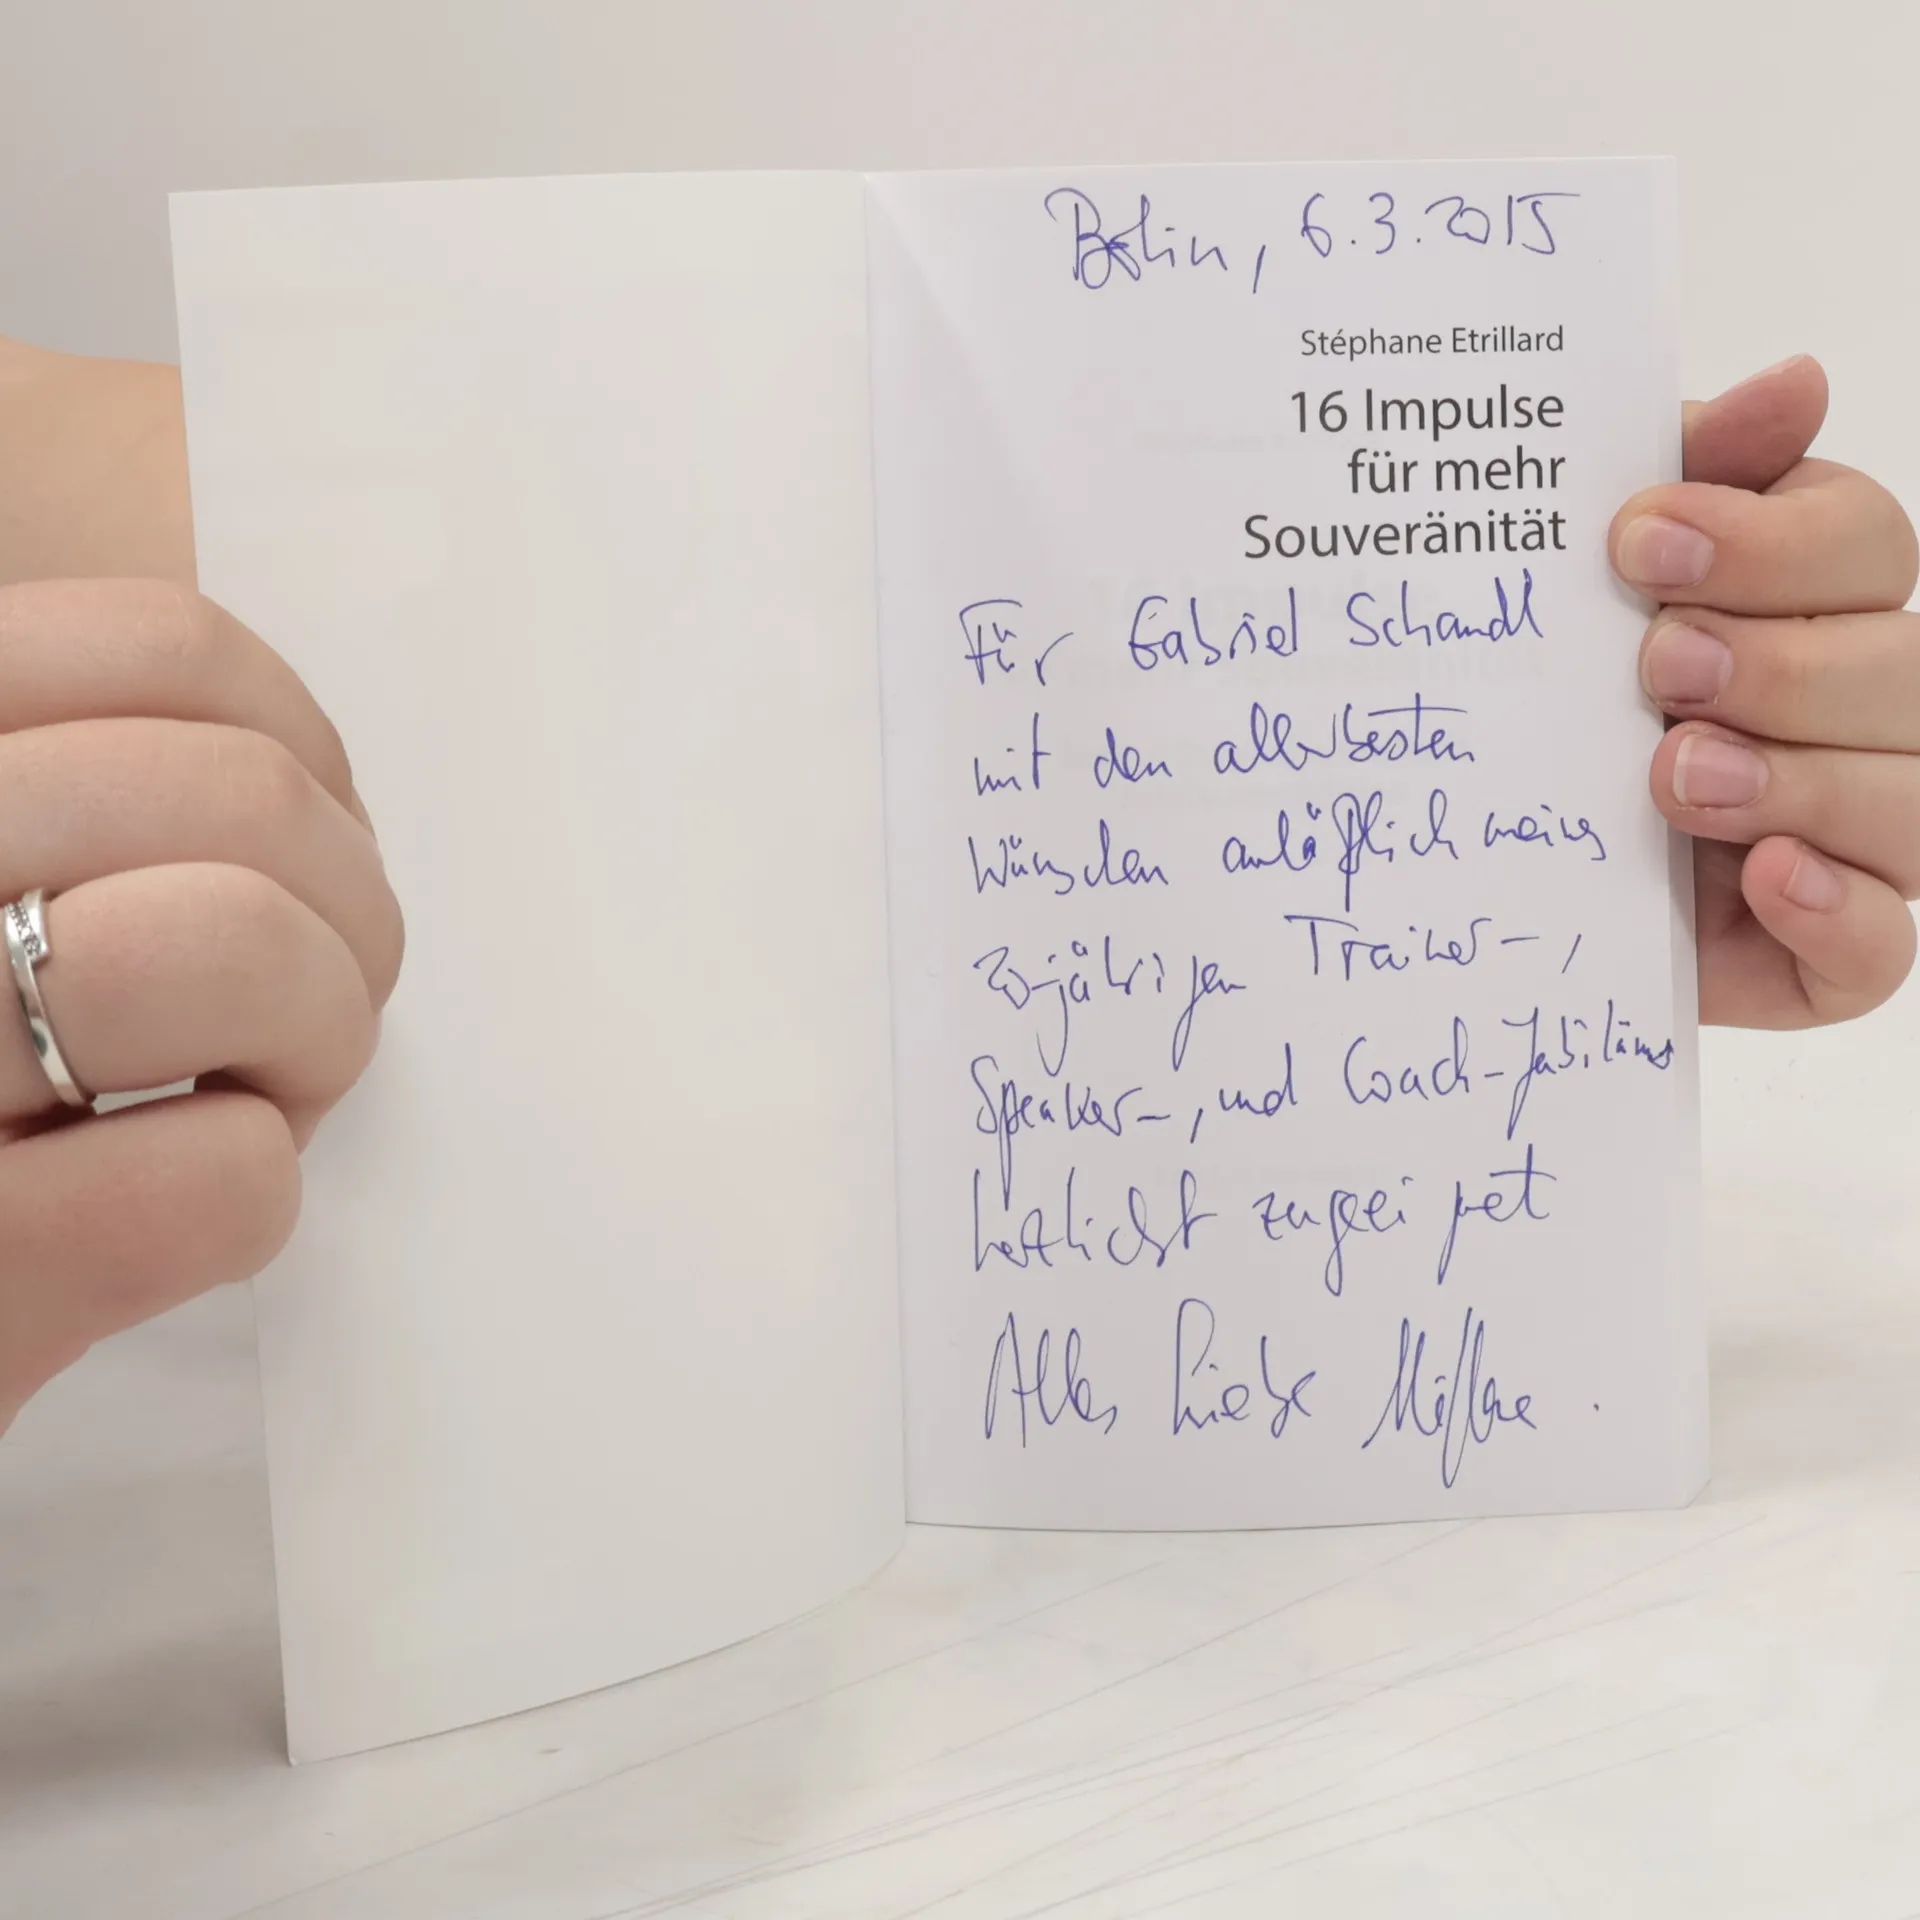 Berlin, 6.3.2015
Stéphane Etrillard
16 Impulse
für mehr
Souveränität
Für Gabriel Schandl
mit den allerbesten
Wünschen anläßlich meines
20-jährigen Trainer-,
Speaker-, und Coach-Jubiläums
herzlichst zugeeignet
Alles Liebe